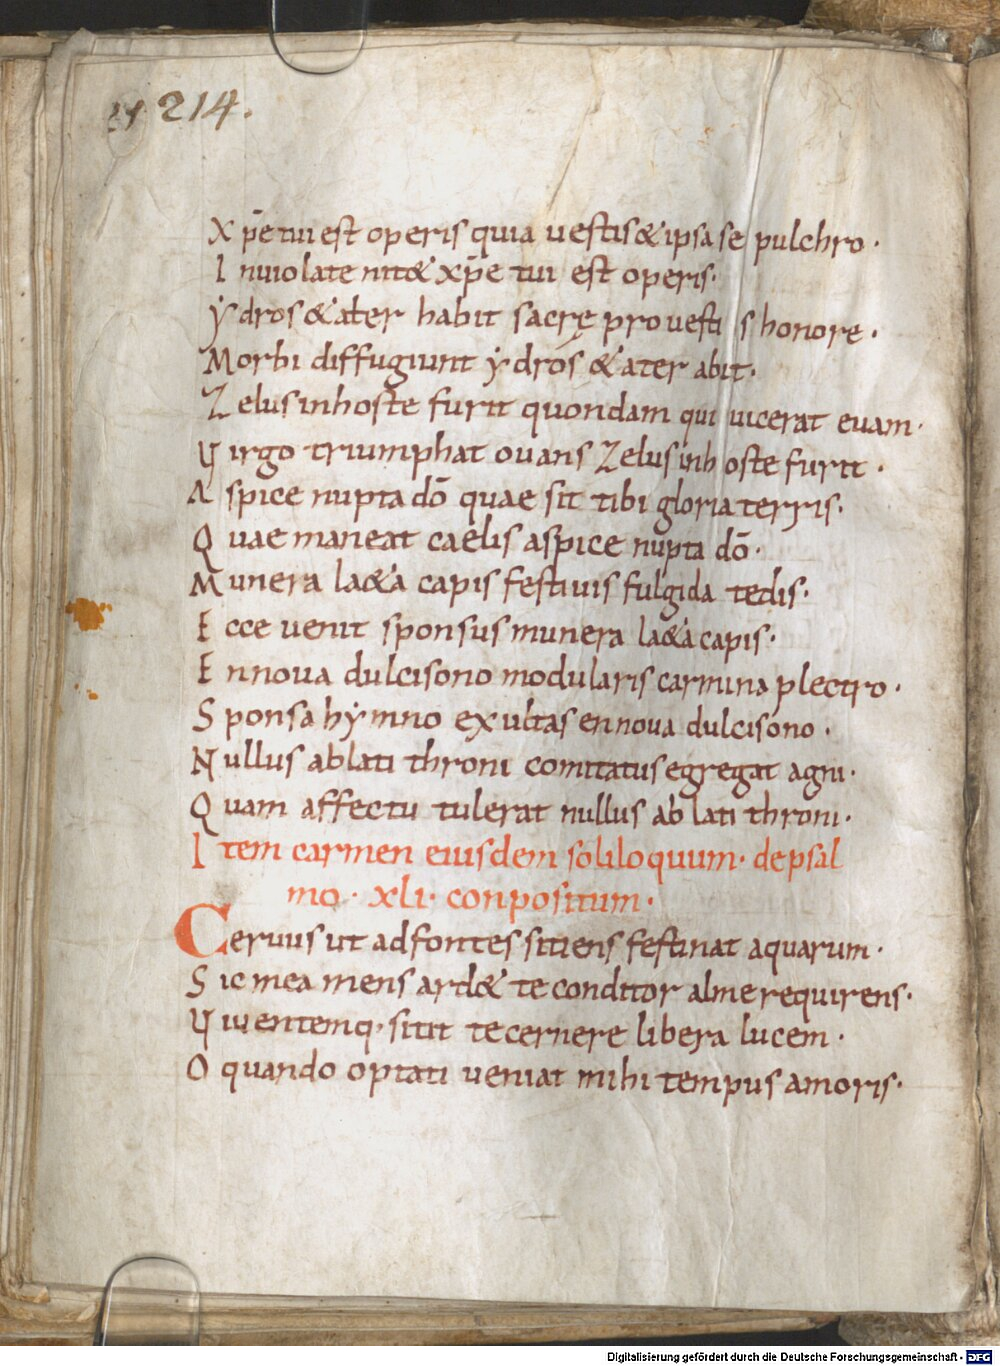 214.
Xp̄e tui est operis quia uestis & ipsa se pulchro·
Inuiolate nit& xp̄e tui est operis·
ẏdros & ater habit sacrę pro uestis honore·
Morbi diffugiunt ẏdros & ater abit·
Zelus in hoste furit quondam qui uicerat euam·
Uirgo triumphat ouans Zelus in hoste furit·
Aspice nupta dō quae sit tibi gloria terris·
Quae maneat caelis aspice nupta dō·
Munera la&a capis festiuis fulgida tedis·
Ecce uenit sponsus munera la&a capis·
En noua dulcisono modularis carmina plectro·
Sponsa hẏmno exultas en noua dulcisono·
Nullus ab lati throni comitatu segregat agni·
Quam affectu tulerat nullus ab lati throni·
Item carmen eiusdem soliloquum· de psal
mo· xli· conpositum·
Ceruus ut ad fontes sitiens festinat aquarum·
Sic mea mens ard& te conditor alme requirens·
Uiuentemq· sitit te cernere libera lucem·
O quando optati ueniat mihi tempus amoris·
Digitalisierung gefördert durch die Deutsche Forschungsgemeinschaft - DFG